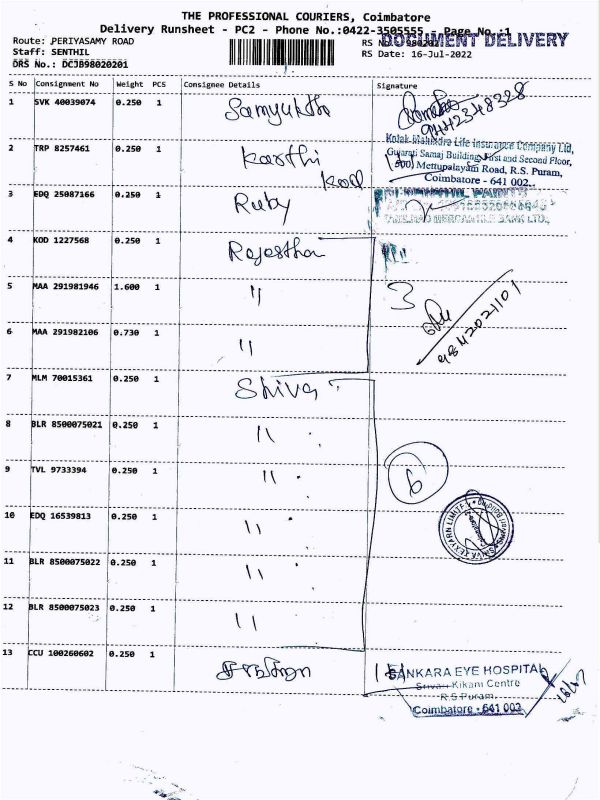 THE PROFESSIONAL COURIERS, Coimbatore
Delivery Runsheet - PC2 - Phone No.:0422-3505555 - Page No.:1
Route: PERIYASAMY ROAD
DOCUMENT DELIVERY
Staff: SENTHIL
RS Date: 16-Jul-2022
DRS No.: DCJB98020201
S No Consignment No Weight PCS Consignee Details Signature
1 SVK 40039074 0.250 1 Samyuktha
9442348328
2 TRP 8257461 0.250 1 Karthi
Kotak Mahindra Life Insurance Company Ltd,
Gujarati Samaj Building, First and Second Floor,
500, Mettupalayam Road, R.S. Puram,
Coimbatore - 641 002.
3 EDQ 25087166 0.250 1 Ruby
TAMILNAD MERCANTILE BANK LTD.,
4 KOD 1227568 0.250 1 Rajestha
5 MAA 291981946 1.600 1 " 3
9842021101
6 MAA 291982106 0.730 1 "
7 MLM 70015361 0.250 1 Shiva
8 BLR 8500075021 0.250 1 "
9 TVL 9733394 0.250 1 " 6
10 EDQ 16539813 0.250 1 "
11 BLR 8500075022 0.250 1 "
12 BLR 8500075023 0.250 1 "
13 CCU 100260602 0.250 1
SANKARA EYE HOSPITAL
Srivari Kikani Centre
R.S.Puram,
Coimbatore - 641 002